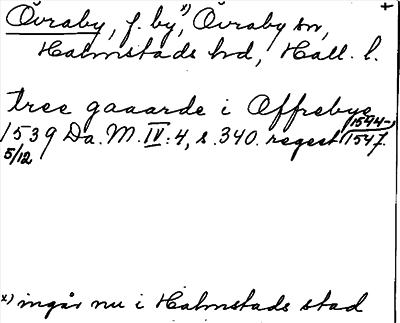 +
Övraby, f. by,ˣ⁾ Övraby sn,
Halmstads hd, Hall. l.
tree gaaarde i Offrebye
1539 Da. M. IV:4, s. 340. regest 1594-,
5/12 1547.
x) ingår nu i Halmstads stad